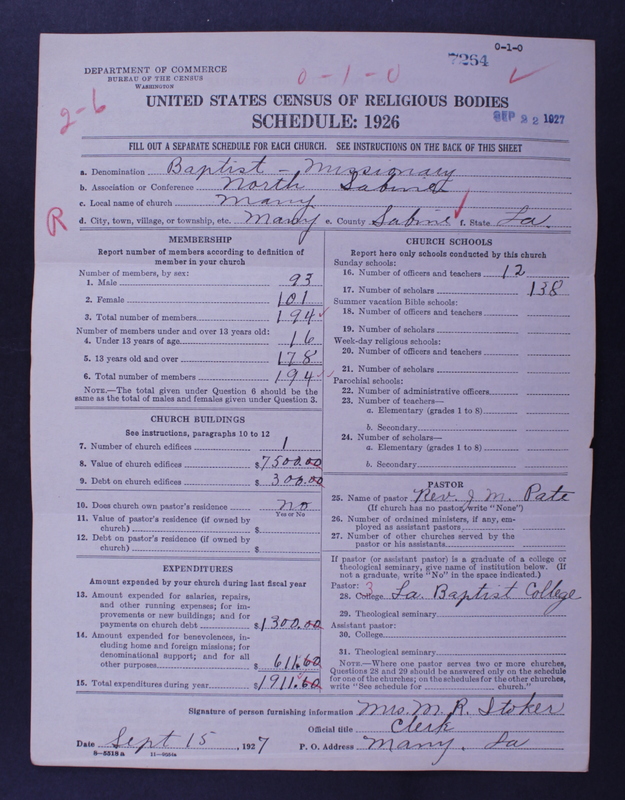 0-1-0
7264
DEPARTMENT OF COMMERCE
BUREAU OF THE CENSUS
WASHINGTON
0-1-0
2-6
UNITED STATES CENSUS OF RELIGIOUS BODIES
SCHEDULE: 1926
SEP 22 1927
FILL OUT A SEPARATE SCHEDULE FOR EACH CHURCH. SEE INSTRUCTIONS ON THE BACK OF THIS SHEET
a. Denomination Baptist - Missionary
b. Association or Conference North Sabine
c. Local name of church Many
R
d. City, town, village, or township, etc. Many e. County Sabine f. State La.
MEMBERSHIP
Report number of members according to definition of
member in your church
Number of members, by sex:
1. Male 93
2. Female 101
3. Total number of members 194
Number of members under and over 13 years old:
4. Under 13 years of age 16
5. 13 years old and over 178
6. Total number of members 194
NOTE.—The total given under Question 6 should be the
same as the total of males and females given under Question 3.
CHURCH BUILDINGS
See instructions, paragraphs 10 to 12
7. Number of church edifices 1
8. Value of church edifices $7500.00
9. Debt on church edifices $ 300.00
10. Does church own pastor's residence no
Yes or No
11. Value of pastor's residence (if owned by
church) $
12. Debt on pastor's residence (if owned by
church) $
EXPENDITURES
Amount expended by your church during last fiscal year
13. Amount expended for salaries, repairs,
and other running expenses; for im-
provements or new buildings; and for
payments on church debt $1300.00
14. Amount expended for benevolences, in-
cluding home and foreign missions; for
denominational support; and for all
other purposes $ 611.60
15. Total expenditures during year $1911.60
CHURCH SCHOOLS
Report here only schools conducted by this church
Sunday schools:
16. Number of officers and teachers 12
17. Number of scholars 138
Summer vacation Bible schools:
18. Number of officers and teachers
19. Number of scholars
Week-day religious schools:
20. Number of officers and teachers
21. Number of scholars
Parochial schools:
22. Number of administrative officers
23. Number of teachers—
a. Elementary (grades 1 to 8)
b. Secondary
24. Number of scholars—
a. Elementary (grades 1 to 8)
b. Secondary
PASTOR
25. Name of pastor Rev. J. M. Pate
(If church has no pastor, write "None")
26. Number of ordained ministers, if any, em-
ployed as assistant pastors
27. Number of other churches served by the
pastor or his assistants
If pastor (or assistant pastor) is a graduate of a college or
theological seminary, give name of institution below. (If
not a graduate, write "No" in the space indicated.)
Pastor: 3
28. College La. Baptist College
29. Theological seminary
Assistant pastor:
30. College
31. Theological seminary
NOTE.—Where one pastor serves two or more churches,
Questions 28 and 29 should be answered only on the schedule
for one of the churches; on the schedules for the other churches,
write "See schedule for church."
Signature of person furnishing information Mrs. M. R. Stoker
Official title Clerk
Date Sept 15, 1927 P. O. Address Many, La
8-5518a